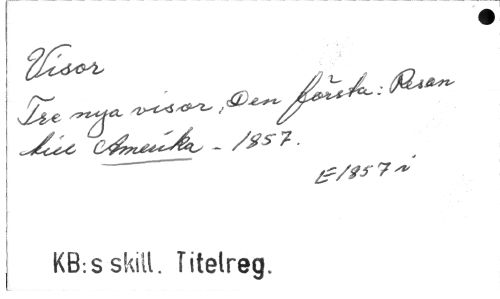 Visor
Tre nya visor, Den första: Resan
till Amerika - 1857.
E1857 i
KB:s skill. Titelreg.